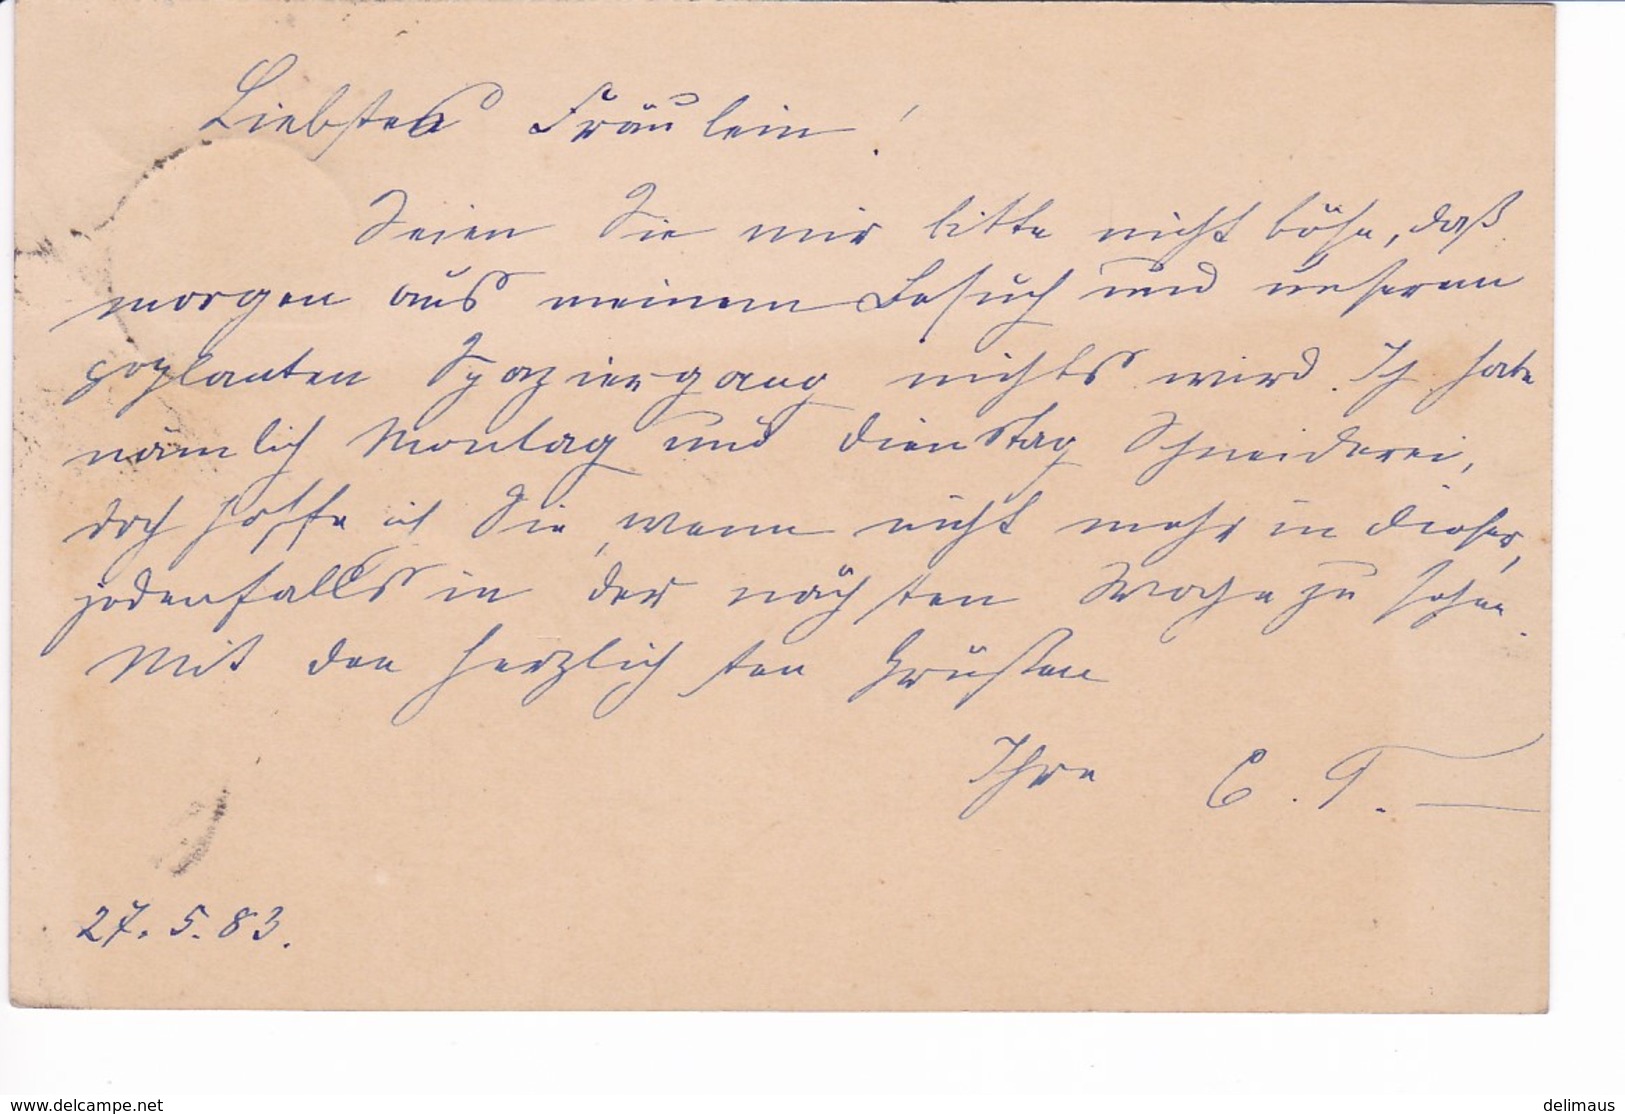 Liebstes Fräulein!
Seien Sie mir bitte nicht böse, daß
morgen aus meinem Besuch und unserem
geplanten Spaziergang nichts wird. Ich habe
nämlich Montag und Dienstag Schneiderei,
doch hoffe ich Sie, wenn nicht mehr in dieser,
jedenfalls in der nächsten Woche zu sehen.
Mit den herzlichsten Grüßen
Ihre C. T.
27. 5. 83.
www.delcampe.net
delimaus